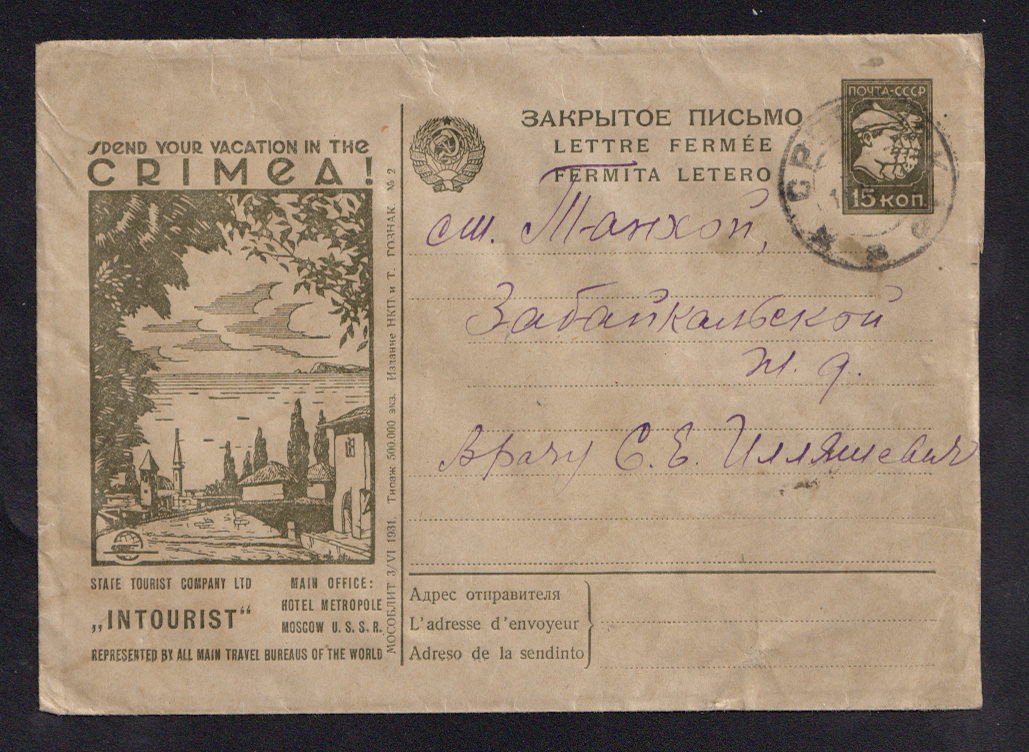 SPEND YOUR VACATION IN THE
CRIMEA!
STATE TOURIST COMPANY LTD
„INTOURIST“
MAIN OFFICE:
HOTEL METROPOLE
MOSCOW U.S.S.R.
REPRESENTED BY ALL MAIN TRAVEL BUREAUS OF THE WORLD
МОСОБЛИТ 3/VI 1931. Тираж 500.000 экз. Издание НКП и Т. ГОЗНАК. № 2
ЗАКРЫТОЕ ПИСЬМО
LETTRE FERMÉE
FERMITA LETERO
ПОЧТА-СССР
15 КОП
ст. Танхой,
Забайкальской
ж. д.
Врачу С. Е. Илляшевич
Адрес отправителя
L'adresse d'envoyeur
Adreso de la sendinto